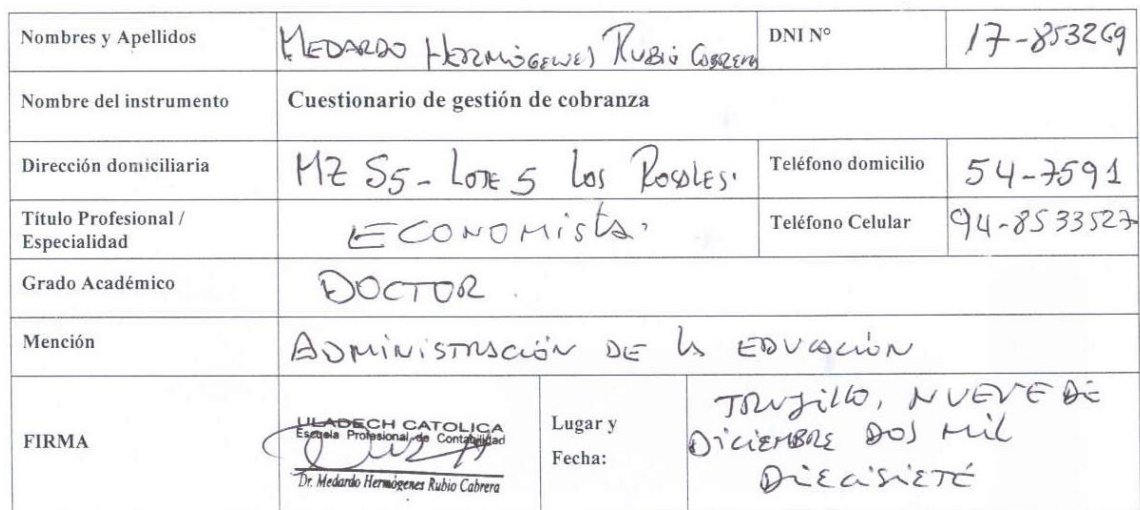 Nombres y Apellidos MEDARDO HERMÓGENES RUBIO CABRERA DNI N° 17-853269
Nombre del instrumento Cuestionario de gestión de cobranza
Dirección domiciliaria MZ S5 - LOTE 5 Los Rosales. Teléfono domicilio 54-7591
Título Profesional / Especialidad ECONOMISTA. Teléfono Celular 94-8533527
Grado Académico DOCTOR.
Mención ADMINISTRACIÓN DE la EDUCACIÓN
FIRMA
ULADECH CATOLICA
Escuela Profesional de Contabilidad
Dr. Medardo Hermógenes Rubio Cabrera
Lugar y Fecha:
TRUJILLO, NUEVE DE
DICIEMBRE DOS MIL
DIECISIETE